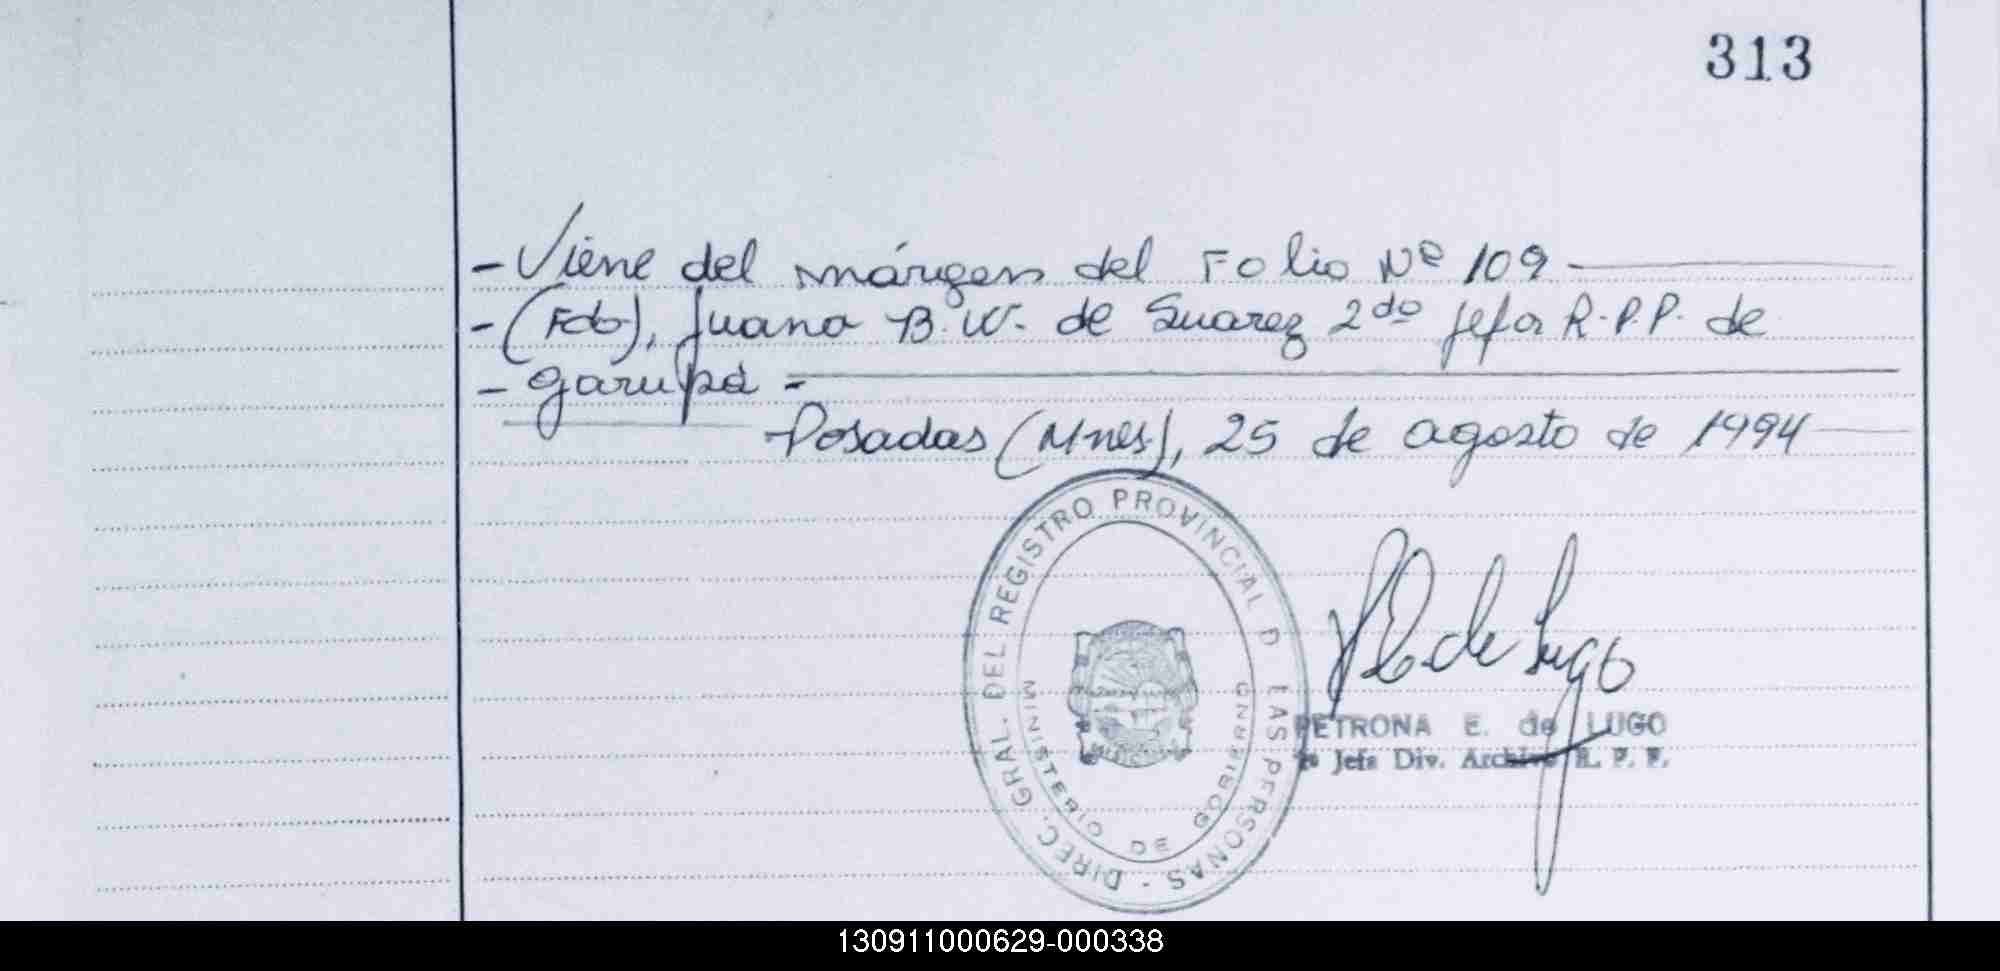 313
- Viene del márgen del Folio Nº 109
- (Fdo), Juana B. W. de Suarez 2do Jefa R.P.P. de
- Garupá -
Posadas (Mnes), 25 de agosto de 1994
DIREC. GRAL. DEL REGISTRO PROVINCIAL D LAS PERSONAS -
MINISTERIO DE GOBIERNO
de Lugo
PETRONA E. de LUGO
Jefa Div. Archivo R. P. P.
130911000629-000338